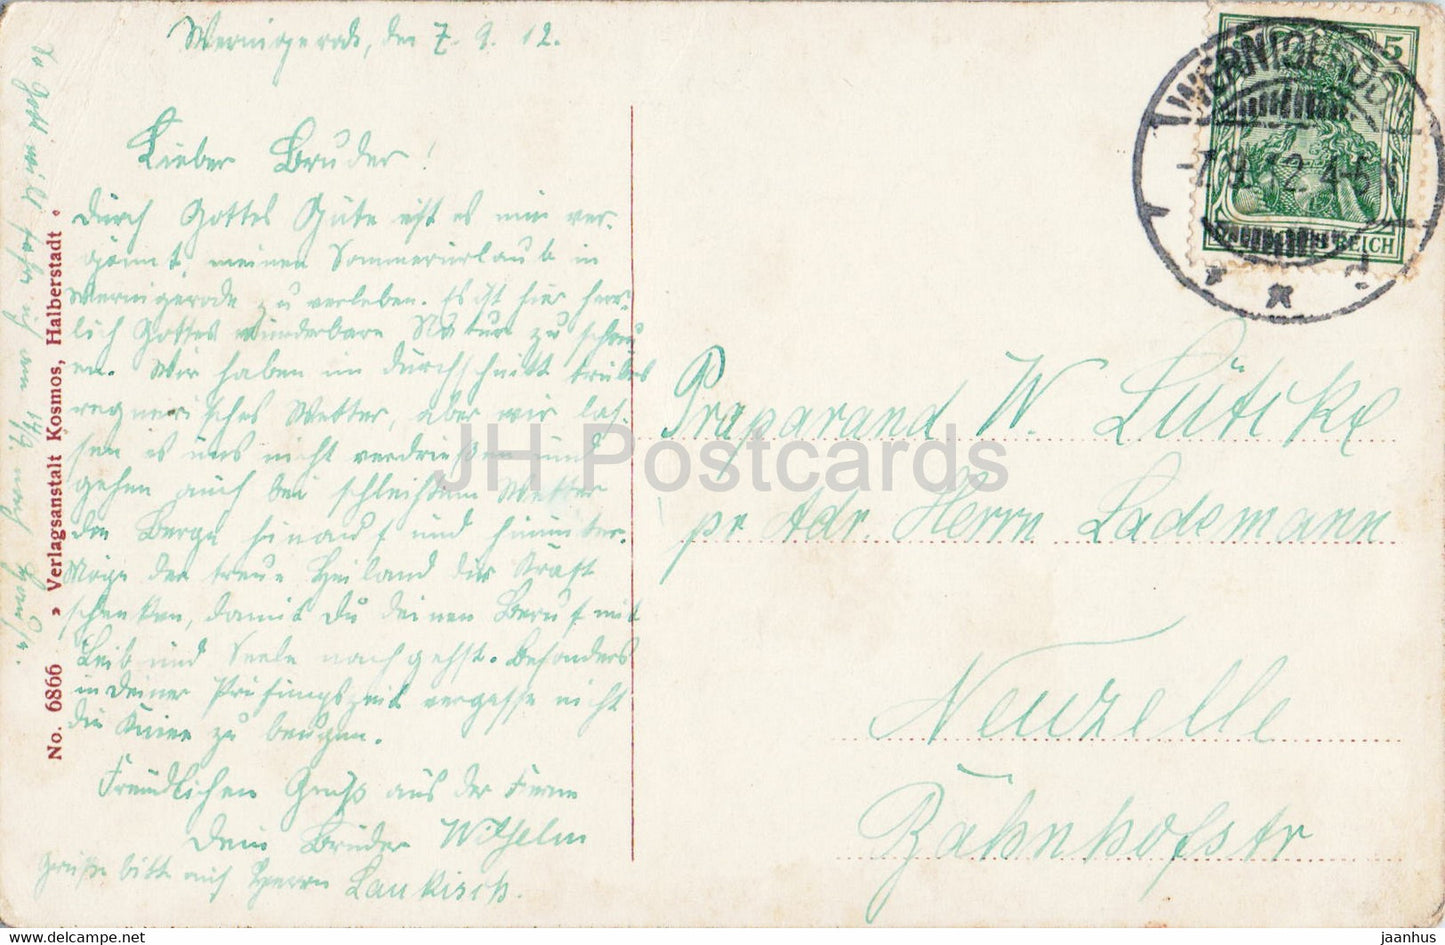 Wernigerode, den 7. 9. 12.
Lieber Bruder!
Durch Gottes Güte ist es mir ver-
gönnt, meinen Sommerurlaub in
Wernigerode zu verleben. Es ist hier herr-
lich Gottes wunderbare Natur zu schau-
en. Wir haben im durchschnitt trübes
regnerisches Wetter, aber wir las-
sen es uns nicht verdrießen und
gehen auch bei schleistem Wetter
die Berge hinauf und hinunter.
Möge der treue Heiland dir Kraft
schenken, damit Du deinen Beruf mit
Leib und Seele nachgehst. Besonders
in deiner Prüfungszeit vergesse nicht
die Kniee zu beugen.
Freundlichen Gruß aus der Ferne
Dein Bruder Wilhelm
Grüße bitte auch Herrn Laukisch.
So Gott will fahr ich am 14/9. nach
No. 6866 Verlagsanstalt Kosmos, Halberstadt
WERNIGERODE
-7.9.12 4-5N
5
REICH
Präparand W. Lüticke
pr Adr. Herrn Lademann
Neuzelle
Bahnhofstr
JH Postcards
www.delcampe.net
jaanhus